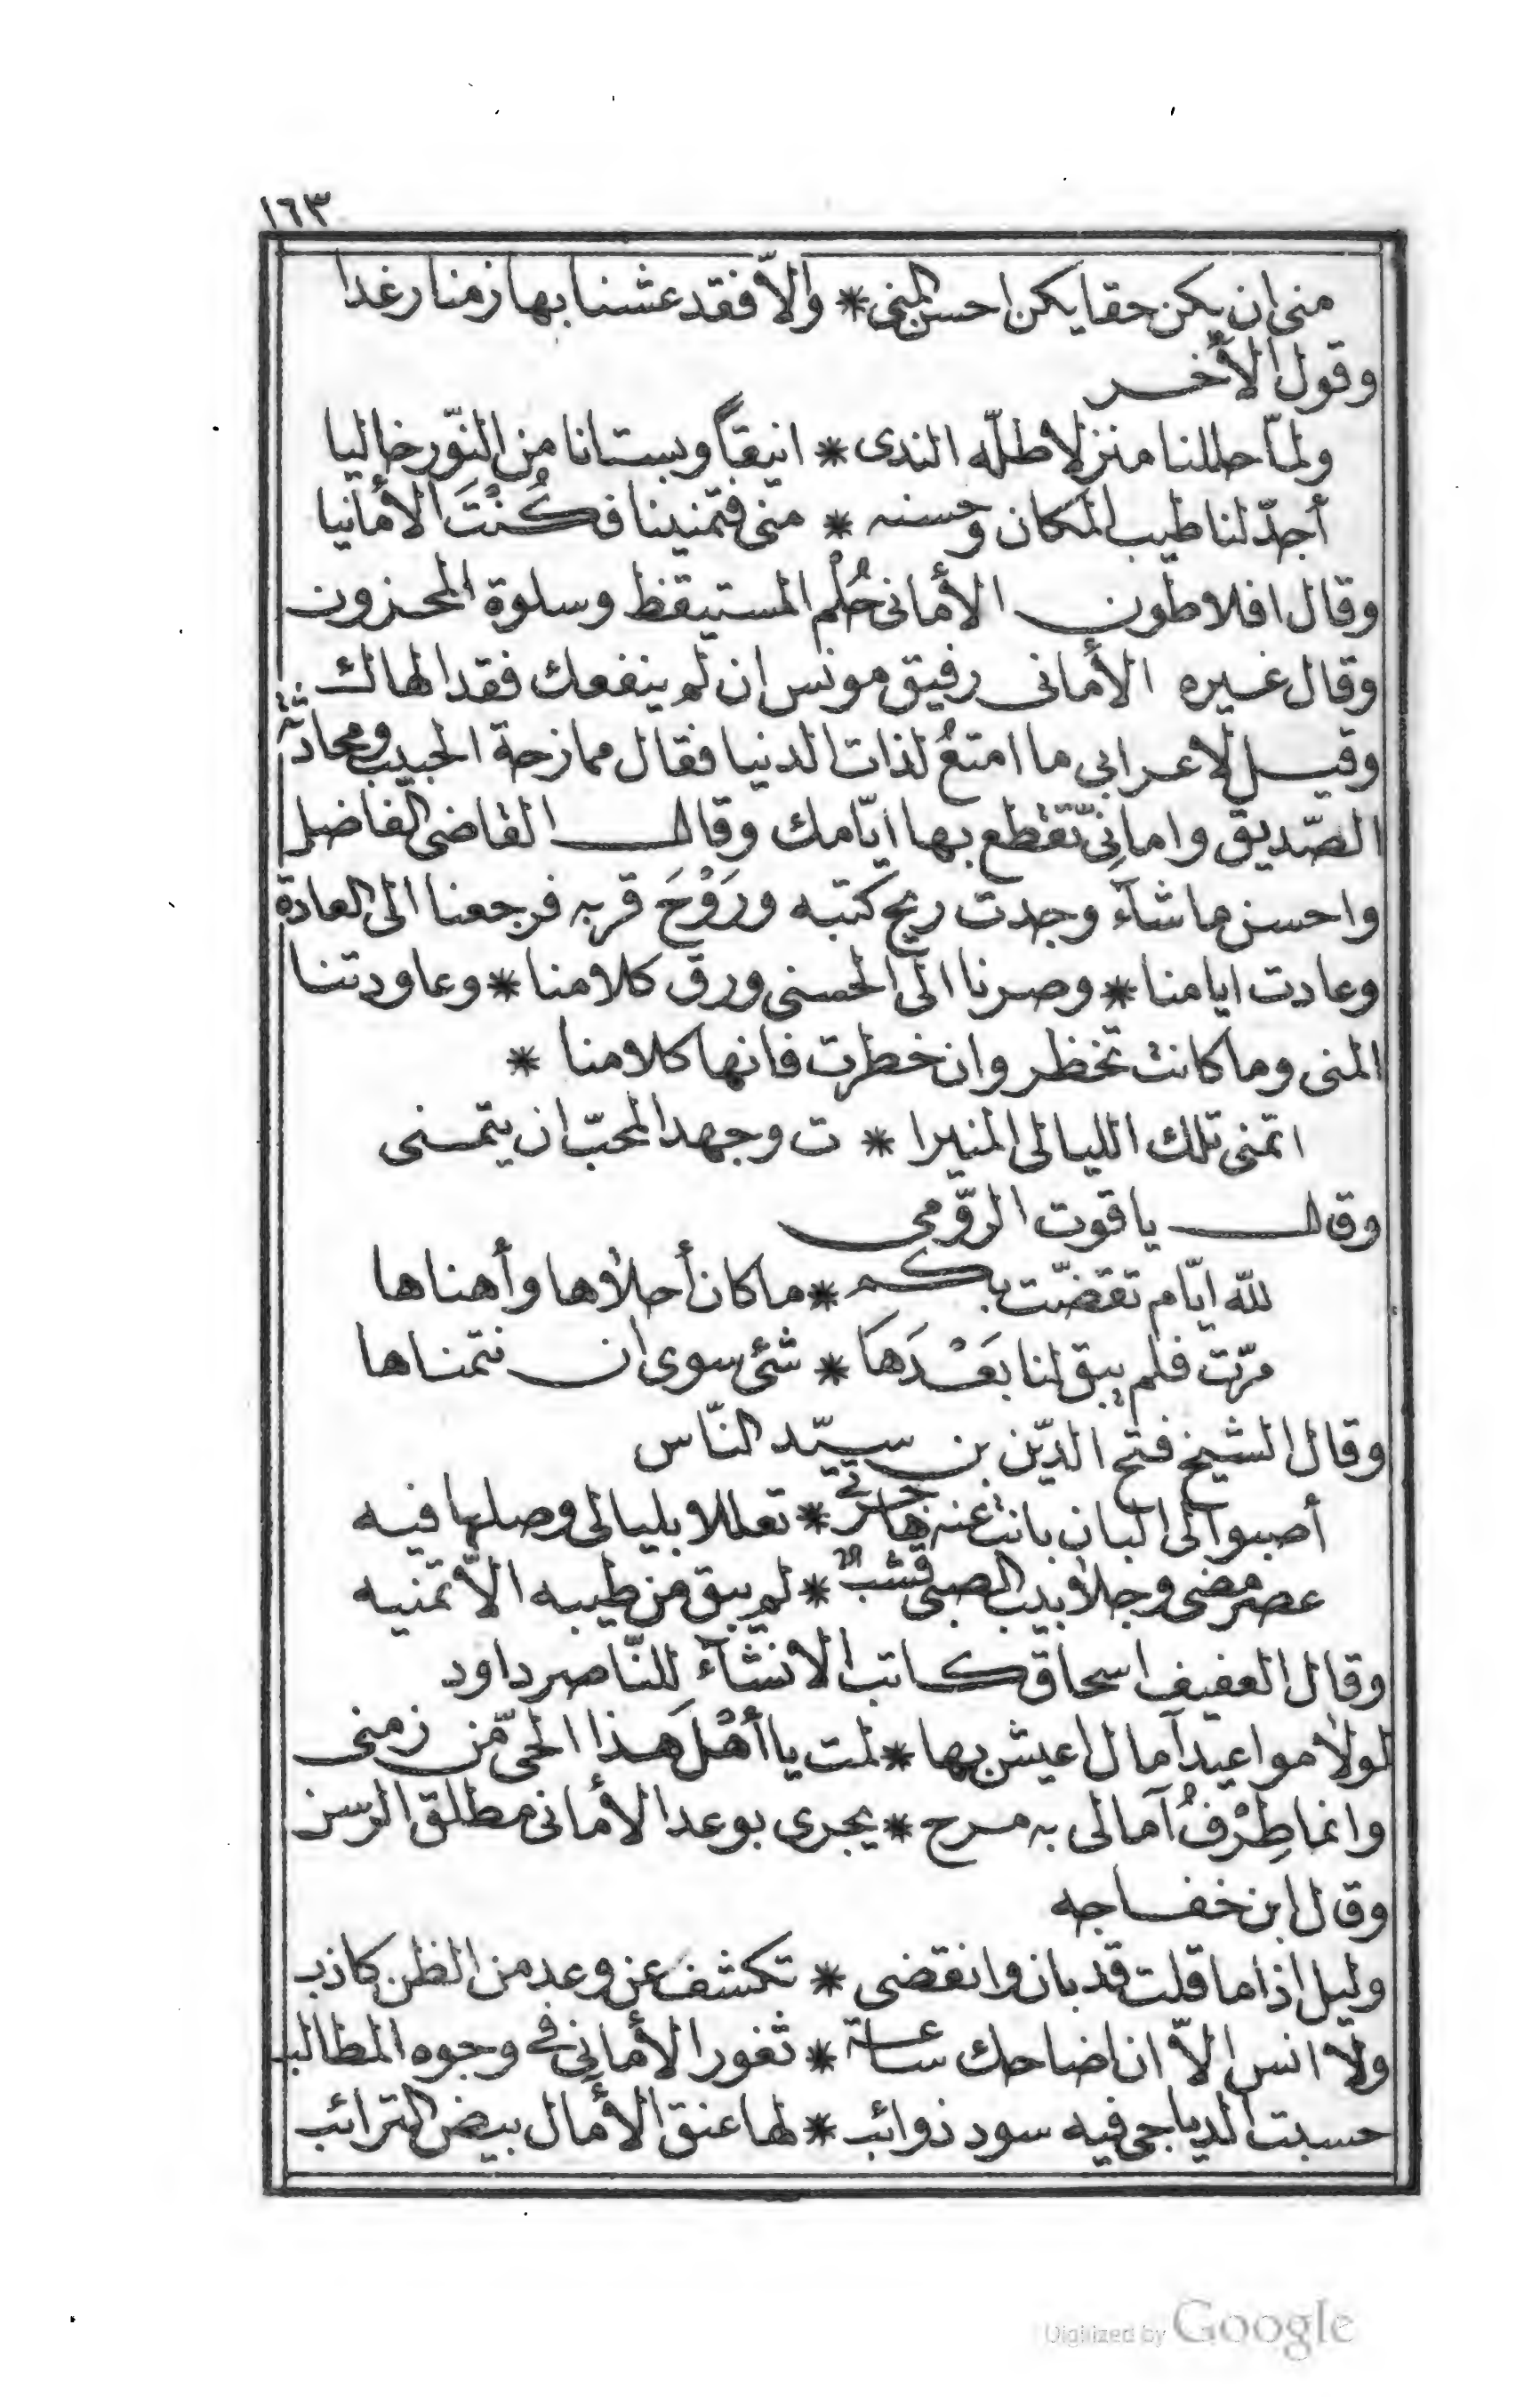 ١٦٣
منى ان يكن حقا يكن احسن المنى * والّا فقد عشنا بها زمنا رغدا
وقول الأخر
ولمّا حللنا منزلا طلّه الندى * انيقاً وبستانا من النّور خاليا
أجدّ لنا طيب المكان وحسنه * منى فتمنينا فكُنْتَ الأمانيا
وقال افلاطون الأمانى حُلْم المستيقظ وسلوة المحزون
وقال غيره الأمانى رفيق مونس ان لم ينفعك فقد الهاك
وقيل لاعرابى ما امتعُ لذات الدنيا فقال ممازحة الحبيب ومحادثة
الصّديق وامانىّ تقطع بها ايّامك وقال القاضى الفاضل
واحسن ما شآء وجدت ريح كتبه ورَوْحَ قربه فرجعنا الى العادة
وعادت ايامنا * وصرنا الى الحسنى ورق كلامنا * وعاودتنا
المنى وما كانت تخطر وان خطرت فانها كلامنا *
اتمنى تلك الليالى المنيرا * ت وجهد المحبّ ان يتمنى
وقال ياقوت الرّومى
لله ايّام تقضّت بكم * ما كان أحلاها وأهناها
مرّت فلم يبق لنا بَعْدَهَا * شئ سوى ان نتمناها
وقال الشيخ فتح الدّين بن سيّد النّاس
أصبوا الى البان بانت عنه هاجرتى * تعللا بليالى وصلها فيه
عصر مضى وجلابيب الصبى قشب * لم يبق من طيبه الّا تمنيه
وقال العفيف اسحاق كاتب الانشآء للنّاصر داود
لولا مواعيد آمال اعيش بها * لمت يا أهْلَ هَذا الحىّ من زمنى
وانما طِرْفُ آمالى به مرح * يجرى بوعد الأمانى مطلق الرسن
وقال ابن خفاجه
وليل اذا ما قلت قد بان وانقضى * تكشف عن وعد من الظن كاذب
ولا انس الّا ان اضاحك ساعة * ثغور الأمانى فى وجوه المطالب
حسبت الدياجى فيه سود ذوائب * لها عنق الأمال بيض الترائب
Digitized by Google